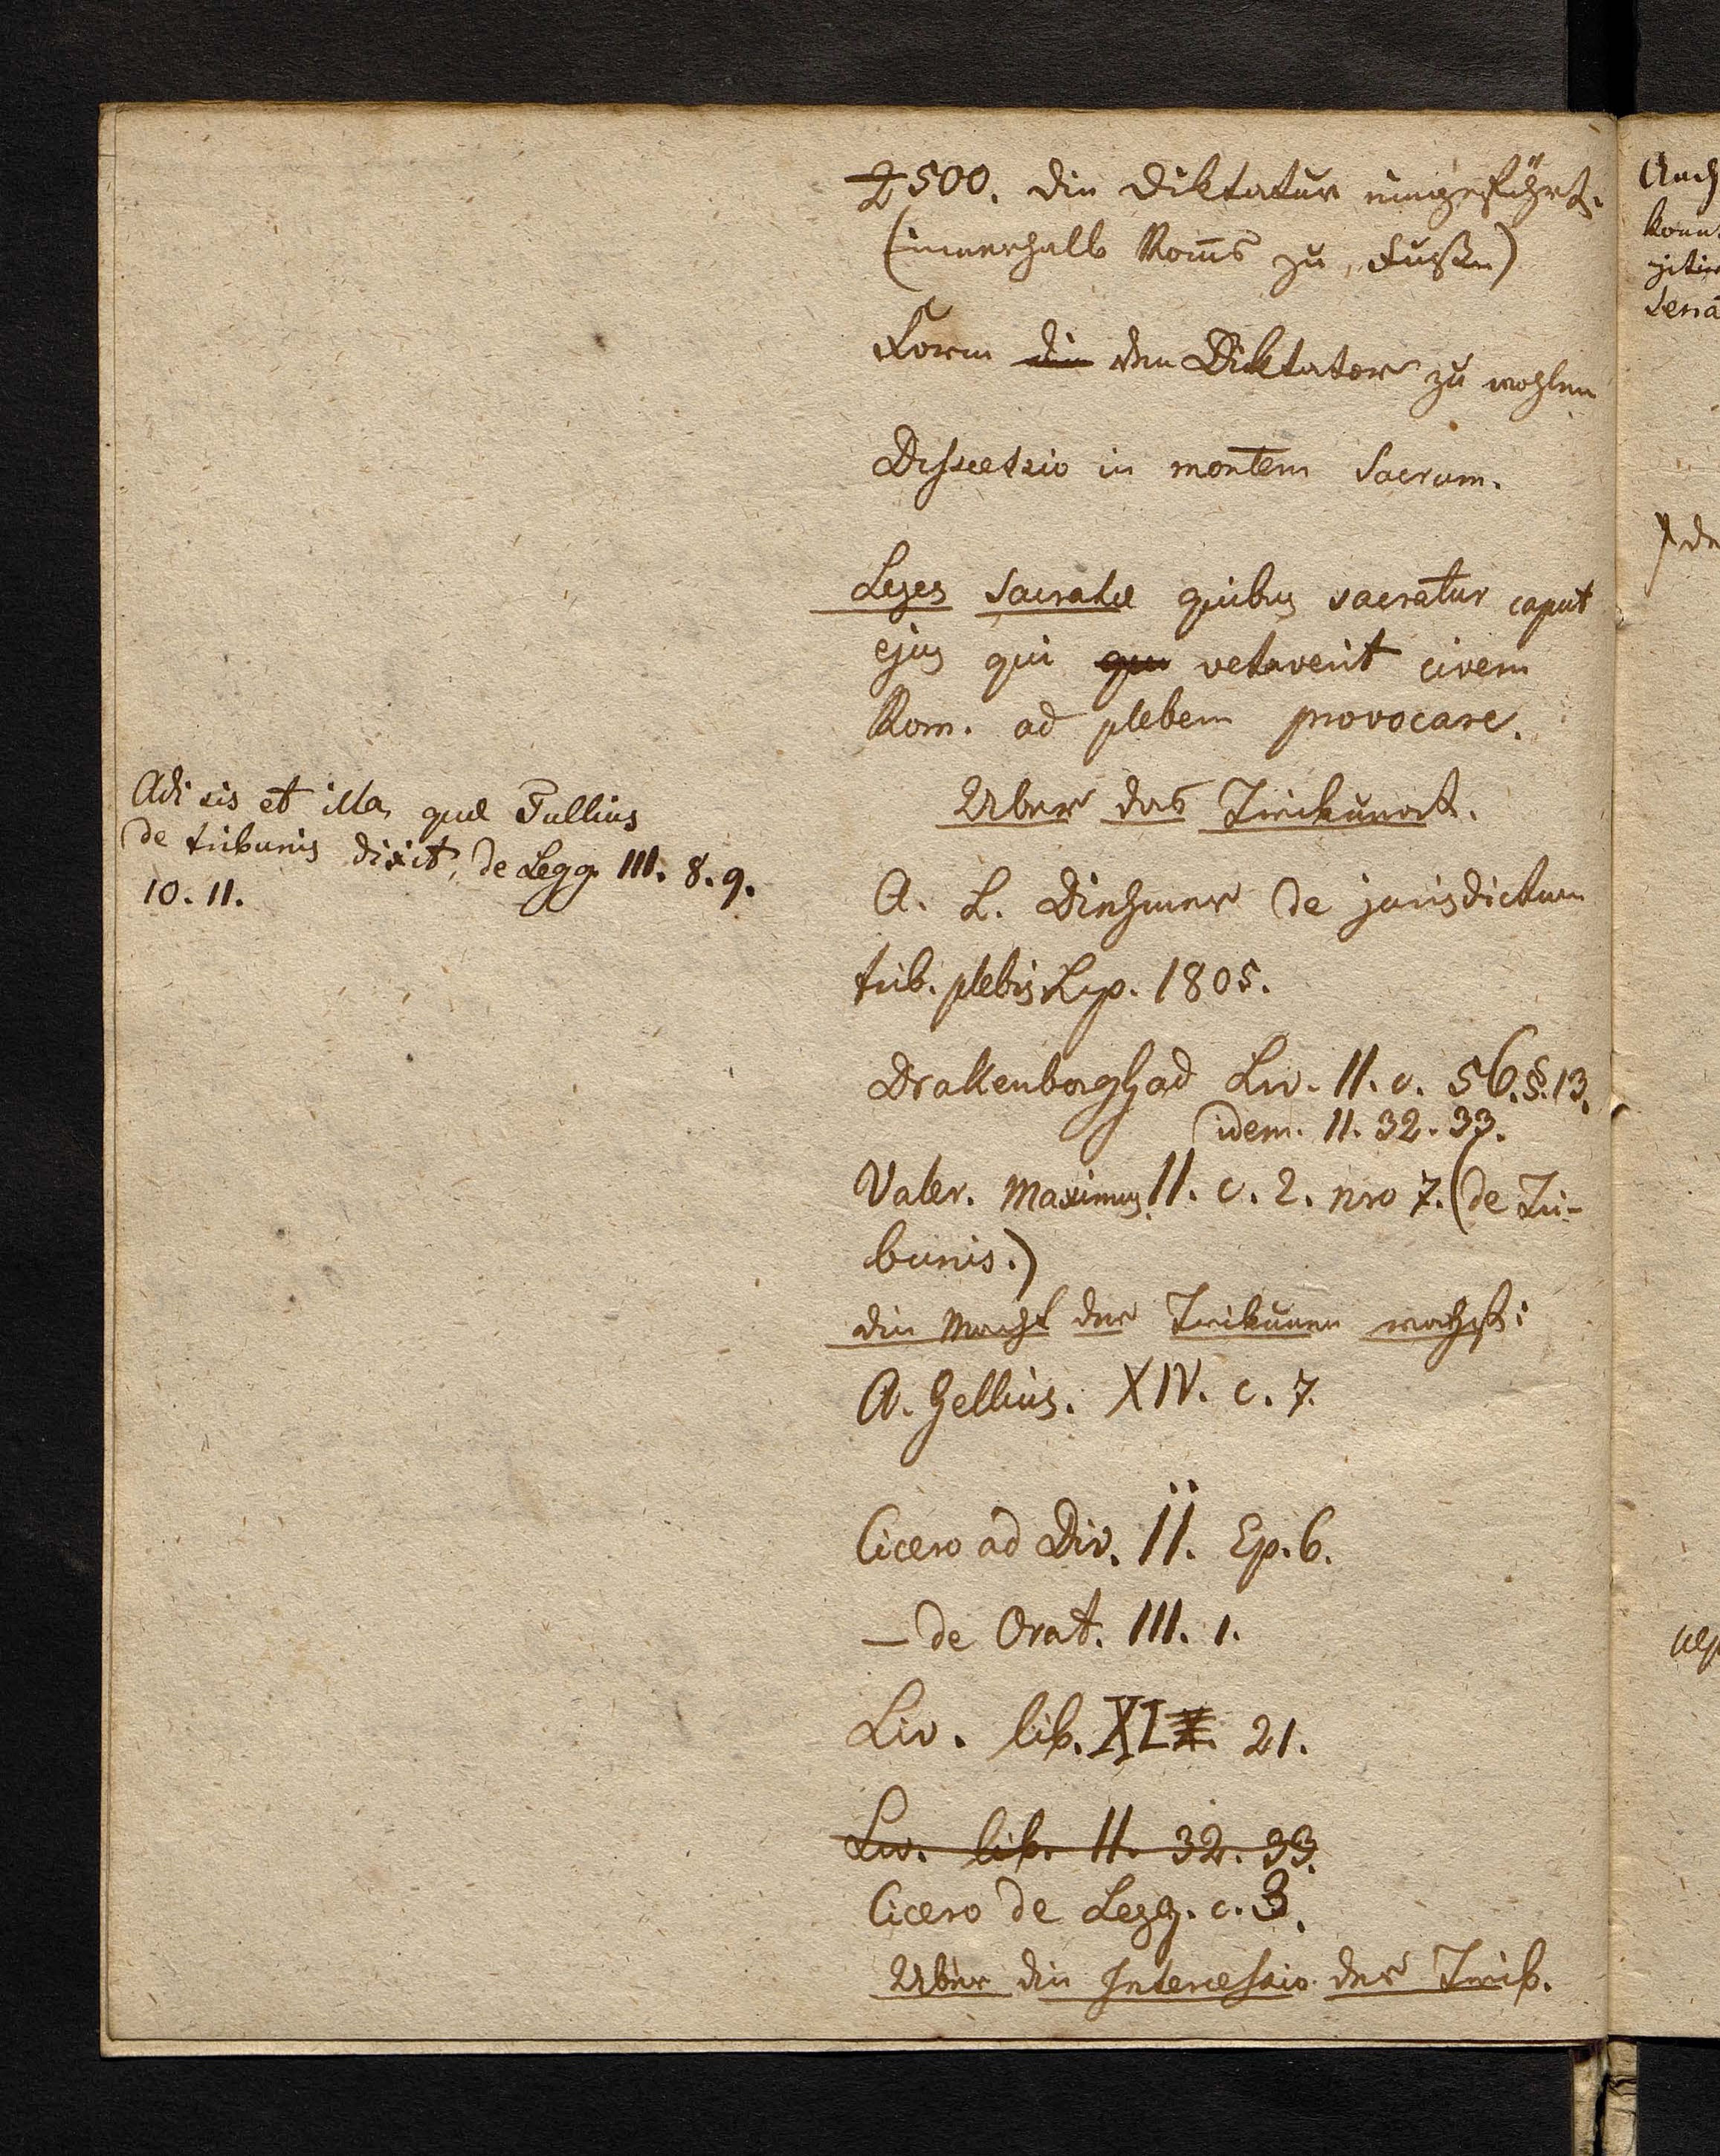 500. die Diktatur eingeführt.
(innerhalb Roms zu Fußen)
Form die den Diktator zu wahlen
Discessio in montem Sacrum.
Leges Sacratæ quibus sacratur caput
ejus qui qui vetaverit civem
Rom. ad plebem provocare.
Adi sis et illa, quæ Tullius
de tribunis dixit, de Legg. III. 8. 9.
10. 11.
Uber das Tribunat.
A. L. Diehmer de jurisdictum
trib. plebis Lip. 1805.
Drakenborgh ad Liv. II. c. 56. §. 13.
idem. II. 32. 33.
Valer. Maximus II. c. 2. nro 7. (de Tri-
bunis.)
die Macht der Tribunen wachst:
A. Gellius. XIV. c. 7.
Cicero ad Div. II. Ep. 6.
— de Orat. III. 1.
Liv. lib. XL 21.
Liv. lib. II. 32. 33.
Cicero de Legg. c. 3.
Uber die Intercessio der Trib.
Auch